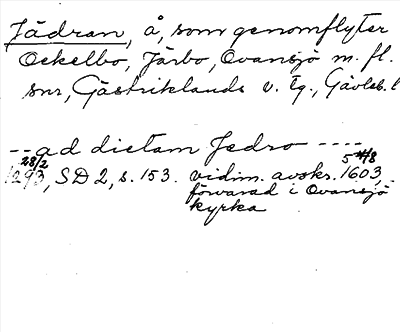 Jädran, å, som genomflyter
Ockelbo, Järbo, Ovansjö m. fl.
snr, Gästriklands v. tg., Gävleb. l
-- ad dictam Jedro ----
28/2 1293, SD 2, s. 153. vidim. avskr. 1603,
förvarad i Ovansjö
kyrka